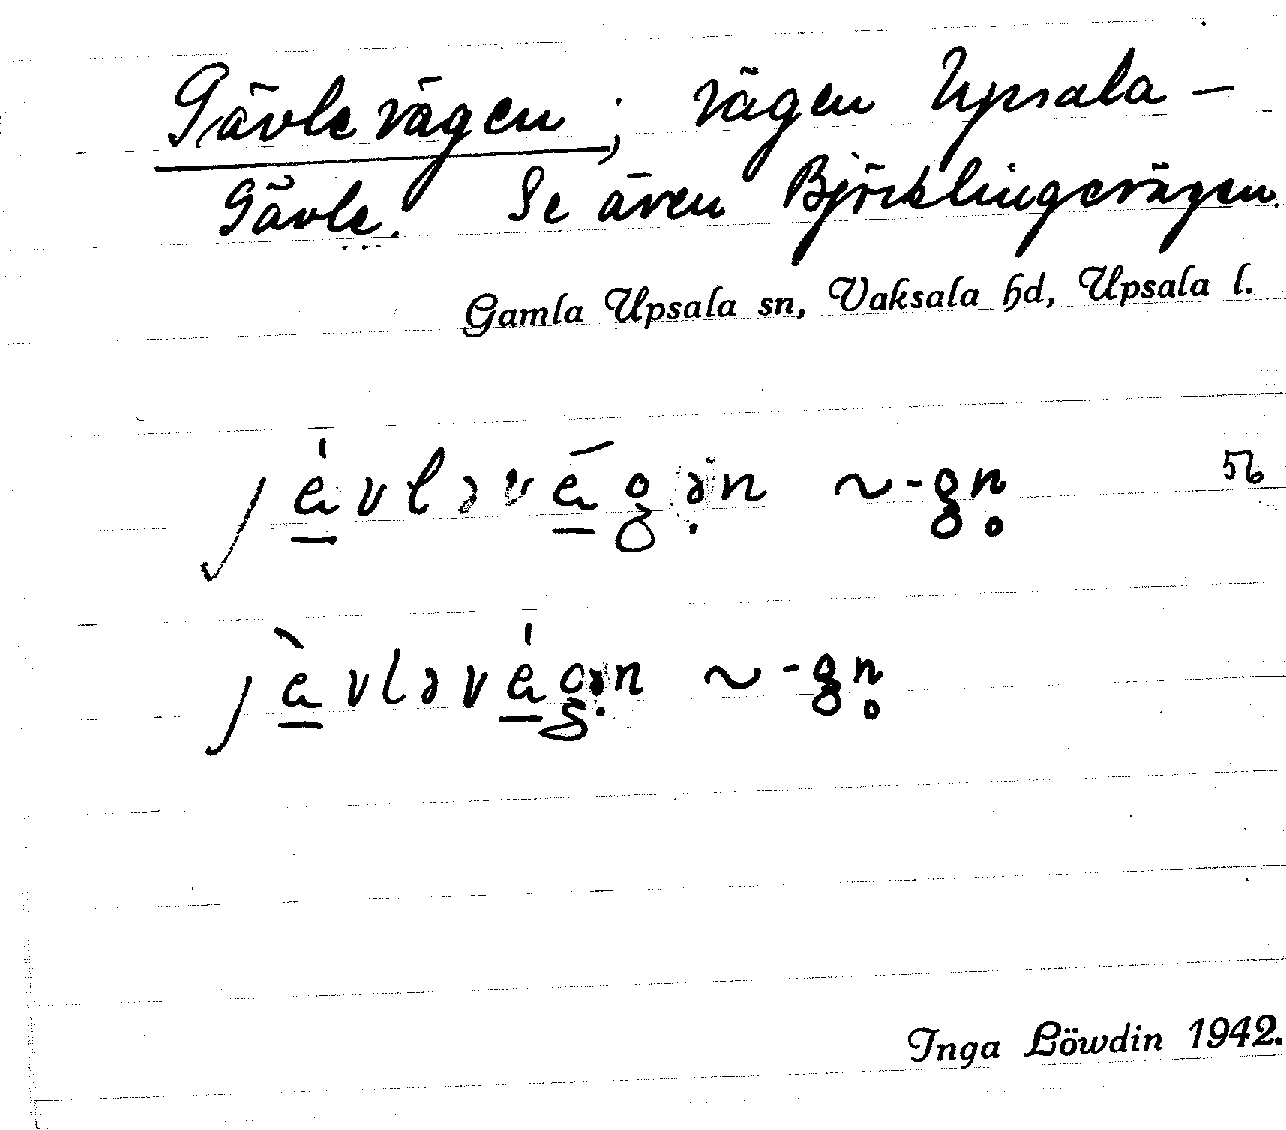 Gävlevägen; vägen Upsala –
Gävle. Se även Björklingevägen.
Gamla Upsala sn, Vaksala hd, Upsala l.
56
~ -gn̥
~ -gn̥
Inga Löwdin 1942.